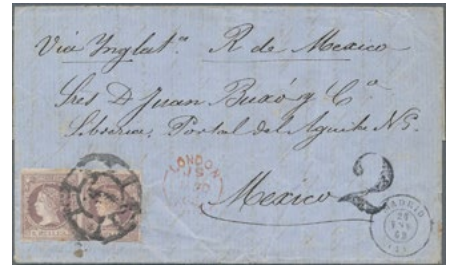 Via Inglat.ª R de Mexico
Sres D Juan Buxó y Cª
Libreria, Portal del Aguila Nº 5.
Mexico
2
LONDON
MADRID